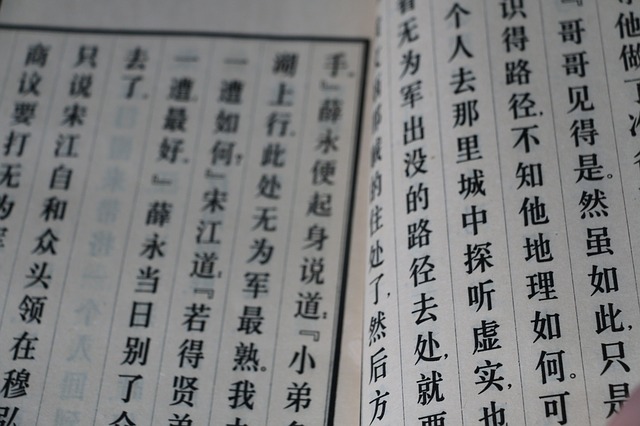 小他做
『哥哥见得是。然虽如此，只是
识得路径，不知他地理如何。可
个人去那里城中探听虚实，也
看无为军出没的路径去处，就要
的住处了，然后方
手。』薛永便起身说道：『小弟
湖上行，此处无为军最熟。我
一遭如何？』宋江道：『若得贤弟
一遭，最好。』薛永当日别了
去了。
只说宋江自和众头领在穆弘
商议要打无为军